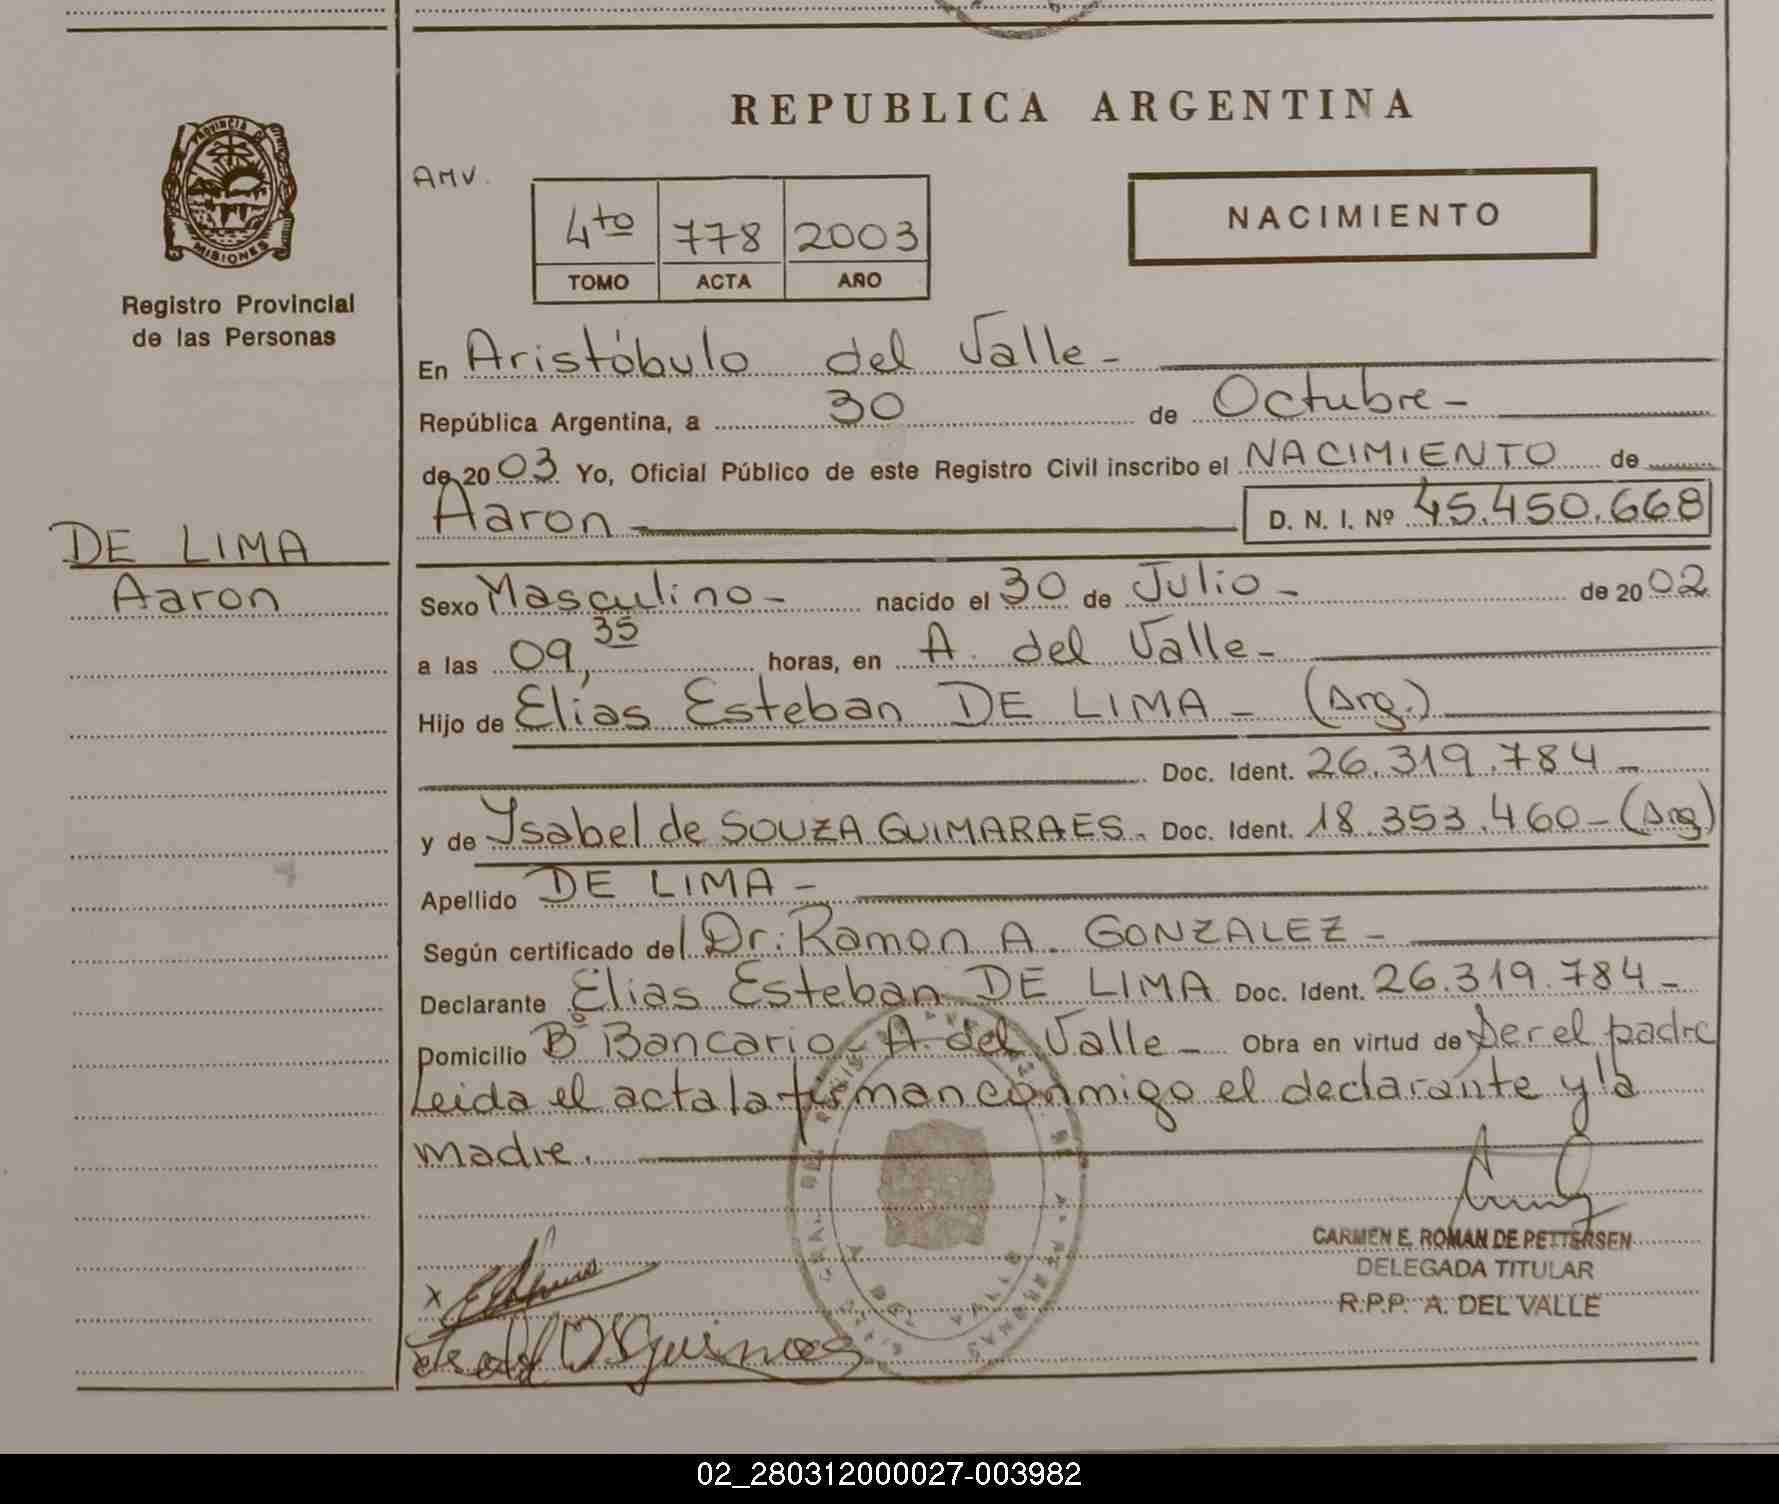 REPUBLICA ARGENTINA
PROVINCIA DE
MISIONES
Registro Provincial
de las Personas
AMV.
4to 778 2003
TOMO ACTA AÑO
NACIMIENTO
En Aristóbulo del Valle -
República Argentina, a 30 de Octubre -
de 20 03 Yo, Oficial Público de este Registro Civil inscribo el NACIMIENTO de
Aaron D. N. I. Nº 45.450.668
DE LIMA
Aaron
Sexo Masculino - nacido el 30 de Julio - de 20 02
a las 09,35 horas, en A. del Valle -
Hijo de Elías Esteban DE LIMA - (Arg.)
Doc. Ident. 26.319.784 -
y de Ysabel de SOUZA GUIMARAES. Doc. Ident. 18.353.460 - (Arg)
Apellido DE LIMA -
Según certificado del Dr. Ramon A. GONZALEZ -
Declarante Elias Esteban DE LIMA Doc. Ident. 26.319.784 -
Domicilio Bº Bancario - A. del Valle - Obra en virtud de Ser el padre
Leida el acta la firman conmigo el declarante y la
madre.
CARMEN E. ROMAN DE PETTERSEN
DELEGADA TITULAR
R.P.P. A. DEL VALLE
X
02_280312000027-003982